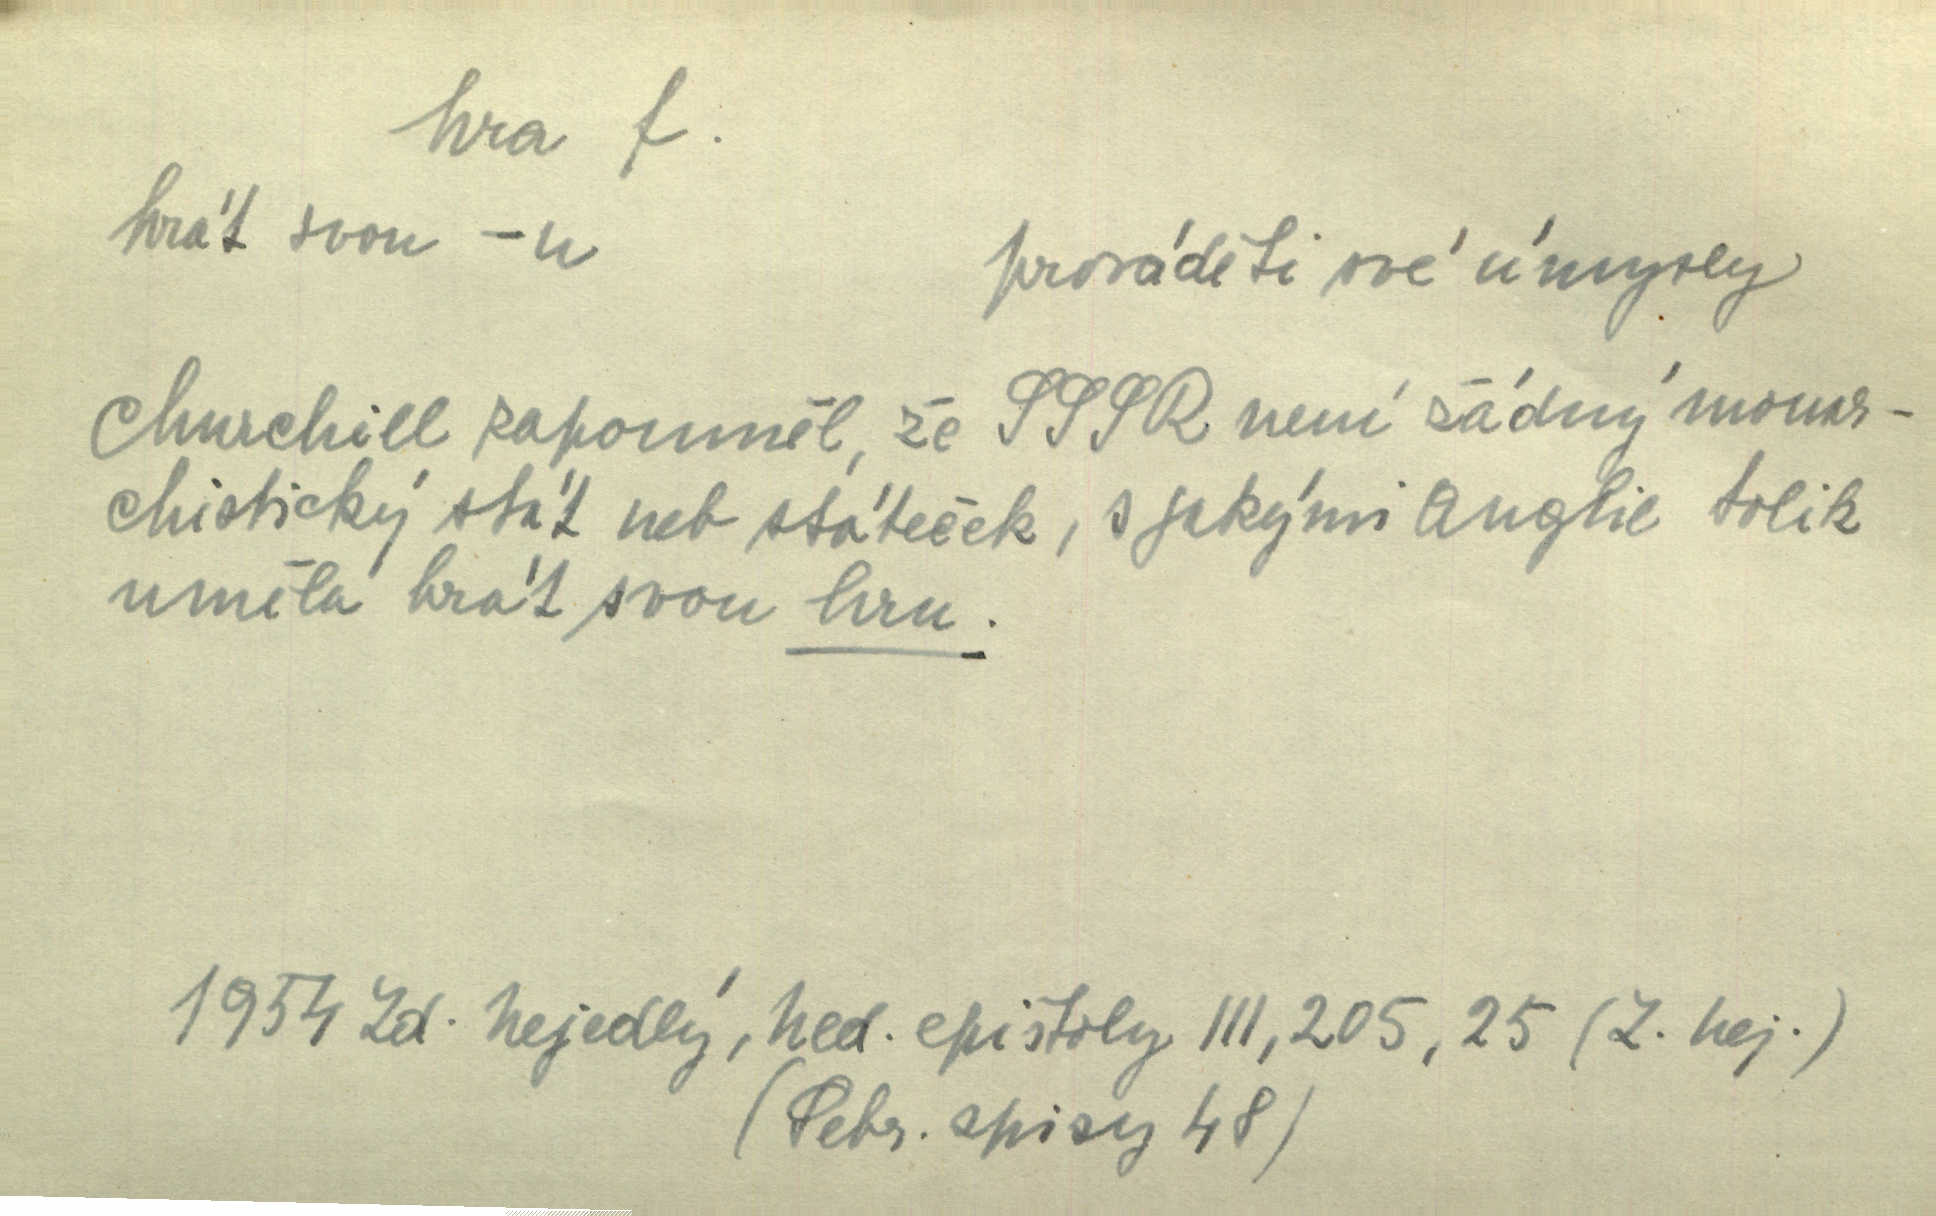 hra f.
hrát svou -u
prováděti své úmysly
Churchill zapomněl, že SSSR není žádný monar-
chistický stát neb státeček, s jakými Anglie tolik
uměla hrát svou hru.
1954 Zd. Nejedlý, Ned. epištoly III, 205, 25 (Z. Nej.)
(Sebr. spisy 48)